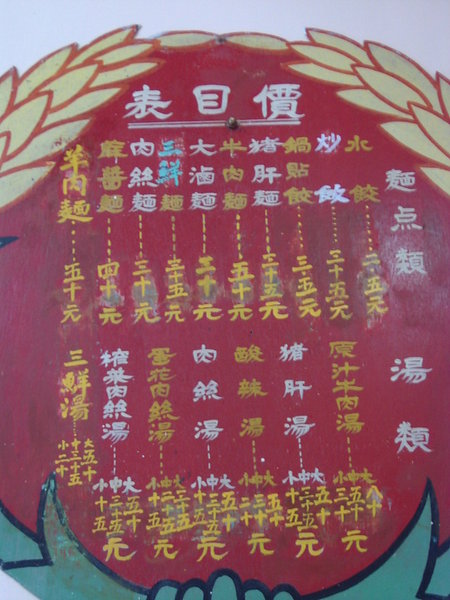 價目表
麵点類
水餃 二.五元
炒飯 三十五元
鍋貼餃 三.五元
猪肝麵 三十五元
牛肉麵 五十元
大滷麵 三十元
三鮮麵 三十五元
肉絲麵 三十元
醡醬麵 四十元
羊肉麵 五十元
湯類
原汁牛肉湯 大八十 中五十 小三十 元
猪肝湯 大五十 中三十五 小十五 元
酸辣湯 大五十 中三十 小二十 元
肉絲湯 大五十 中三十五 小十五 元
蛋花肉絲湯 大三十五 中二十五 小十五 元
榨菜肉絲湯 大五十 中三十五 小十五 元
三鮮湯 大五十 中三十五 小二十